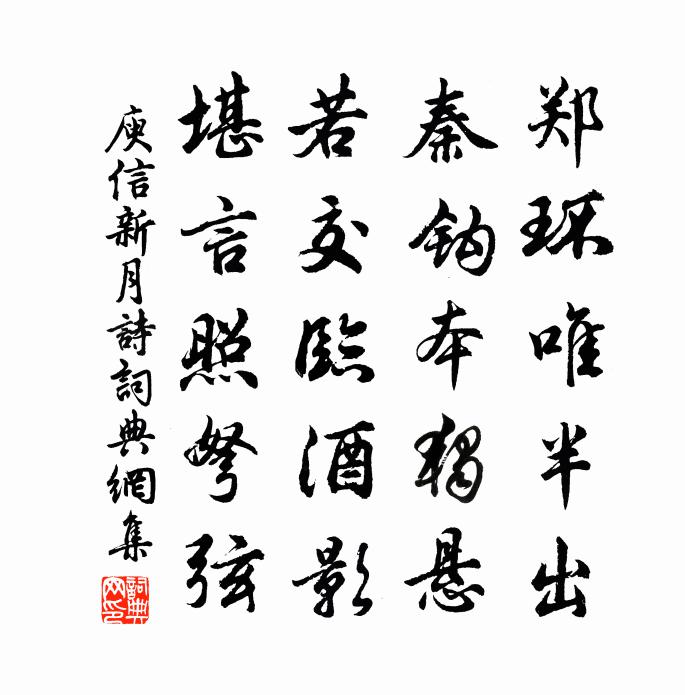 郑环唯半出
秦钩本独悬
若交臨酒影
堪言照弩弦
庾信新月詩詞典網集
詞典网印